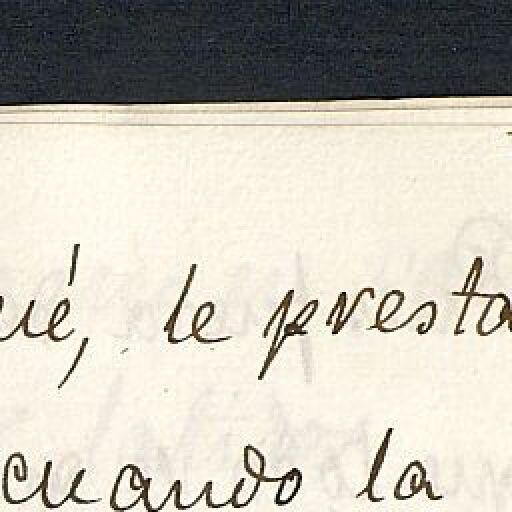 ué, le presta
cuando la